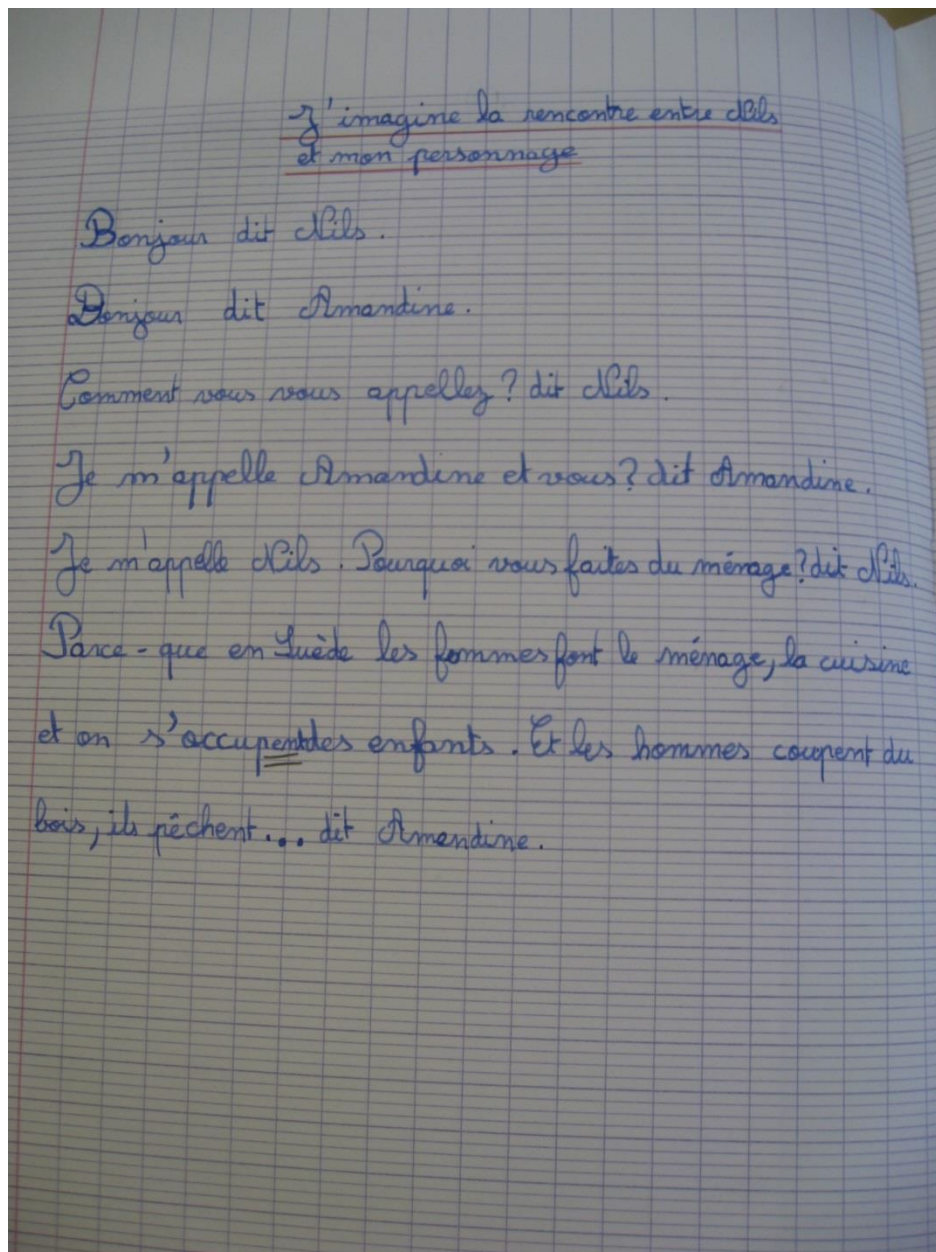 J'imagine la rencontre entre Nils
et mon personnage
Bonjour dit Nils.
Bonjour dit Amandine.
Comment vous vous appellez ? dit Nils.
Je m'appelle Amandine et vous ? dit Amandine.
Je m'appelle Nils. Pourquoi vous faites du ménage ? dit Nils.
Parce-que en Suède les femmes font le ménage, la cuisine
et on s'occupent des enfants. Et les hommes coupent du
bois, ils pêchent... dit Amandine.